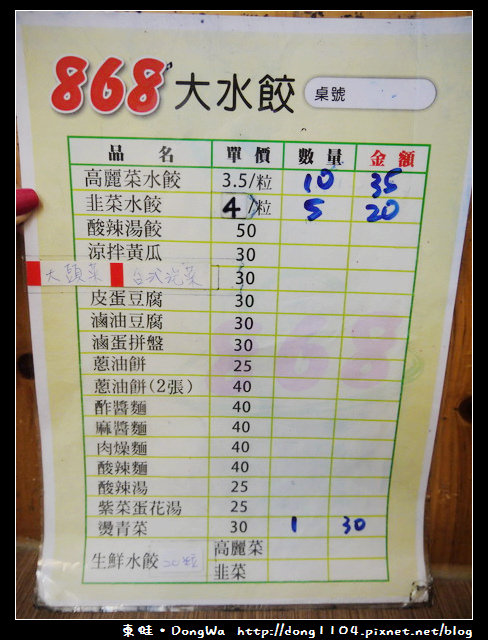 868 大水餃 桌號
品名 單價 數量 金額
高麗菜水餃 3.5/粒 10 35
韭菜水餃 4/粒 5 20
酸辣湯餃 50
涼拌黃瓜 30
大頭菜 台式泡菜 30
皮蛋豆腐 30
滷油豆腐 30
滷蛋拼盤 30
蔥油餅 25
蔥油餅(2張) 40
酢醬麵 40
麻醬麵 40
肉燥麵 40
酸辣麵 40
酸辣湯 25
紫菜蛋花湯 25
燙青菜 30 1 30
生鮮水餃 20粒 高麗菜
韭菜
868
東蛙·DongWa http://dong1104.pixnet.net/blog